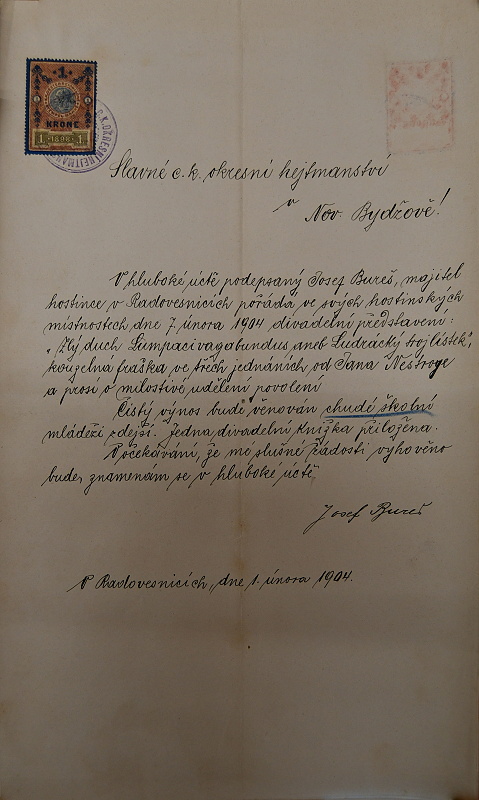 1
KRONE
1 1898 1
C.K.OKRESNÍ HEJTMAN
Slavné c. k. okresní hejtmanství
v
Nov. Bydžově!
V hluboké úctě podepsaný Josef Bureš, majitel
hostince v Radovesnicích pořádá ve svých hostinských
místnostech dne 7. února 1904 divadelní představení:
„Zlý duch Lumpacivagabundus, aneb Ludrácký trojlístek",
kouzelná fraška ve třech jednáních od Jana Nestroye
a prosí o milostivé udělení povolení
Čistý výnos bude věnován chudé školní
mládeži zdejší. Jedna divadelní knížka přiložena.
Počekávání, že mé slušné žádosti vyhověno
bude, znamenám se v hluboké úctě
Josef Bureš
V Radovesnicích, dne 1. února 1904.